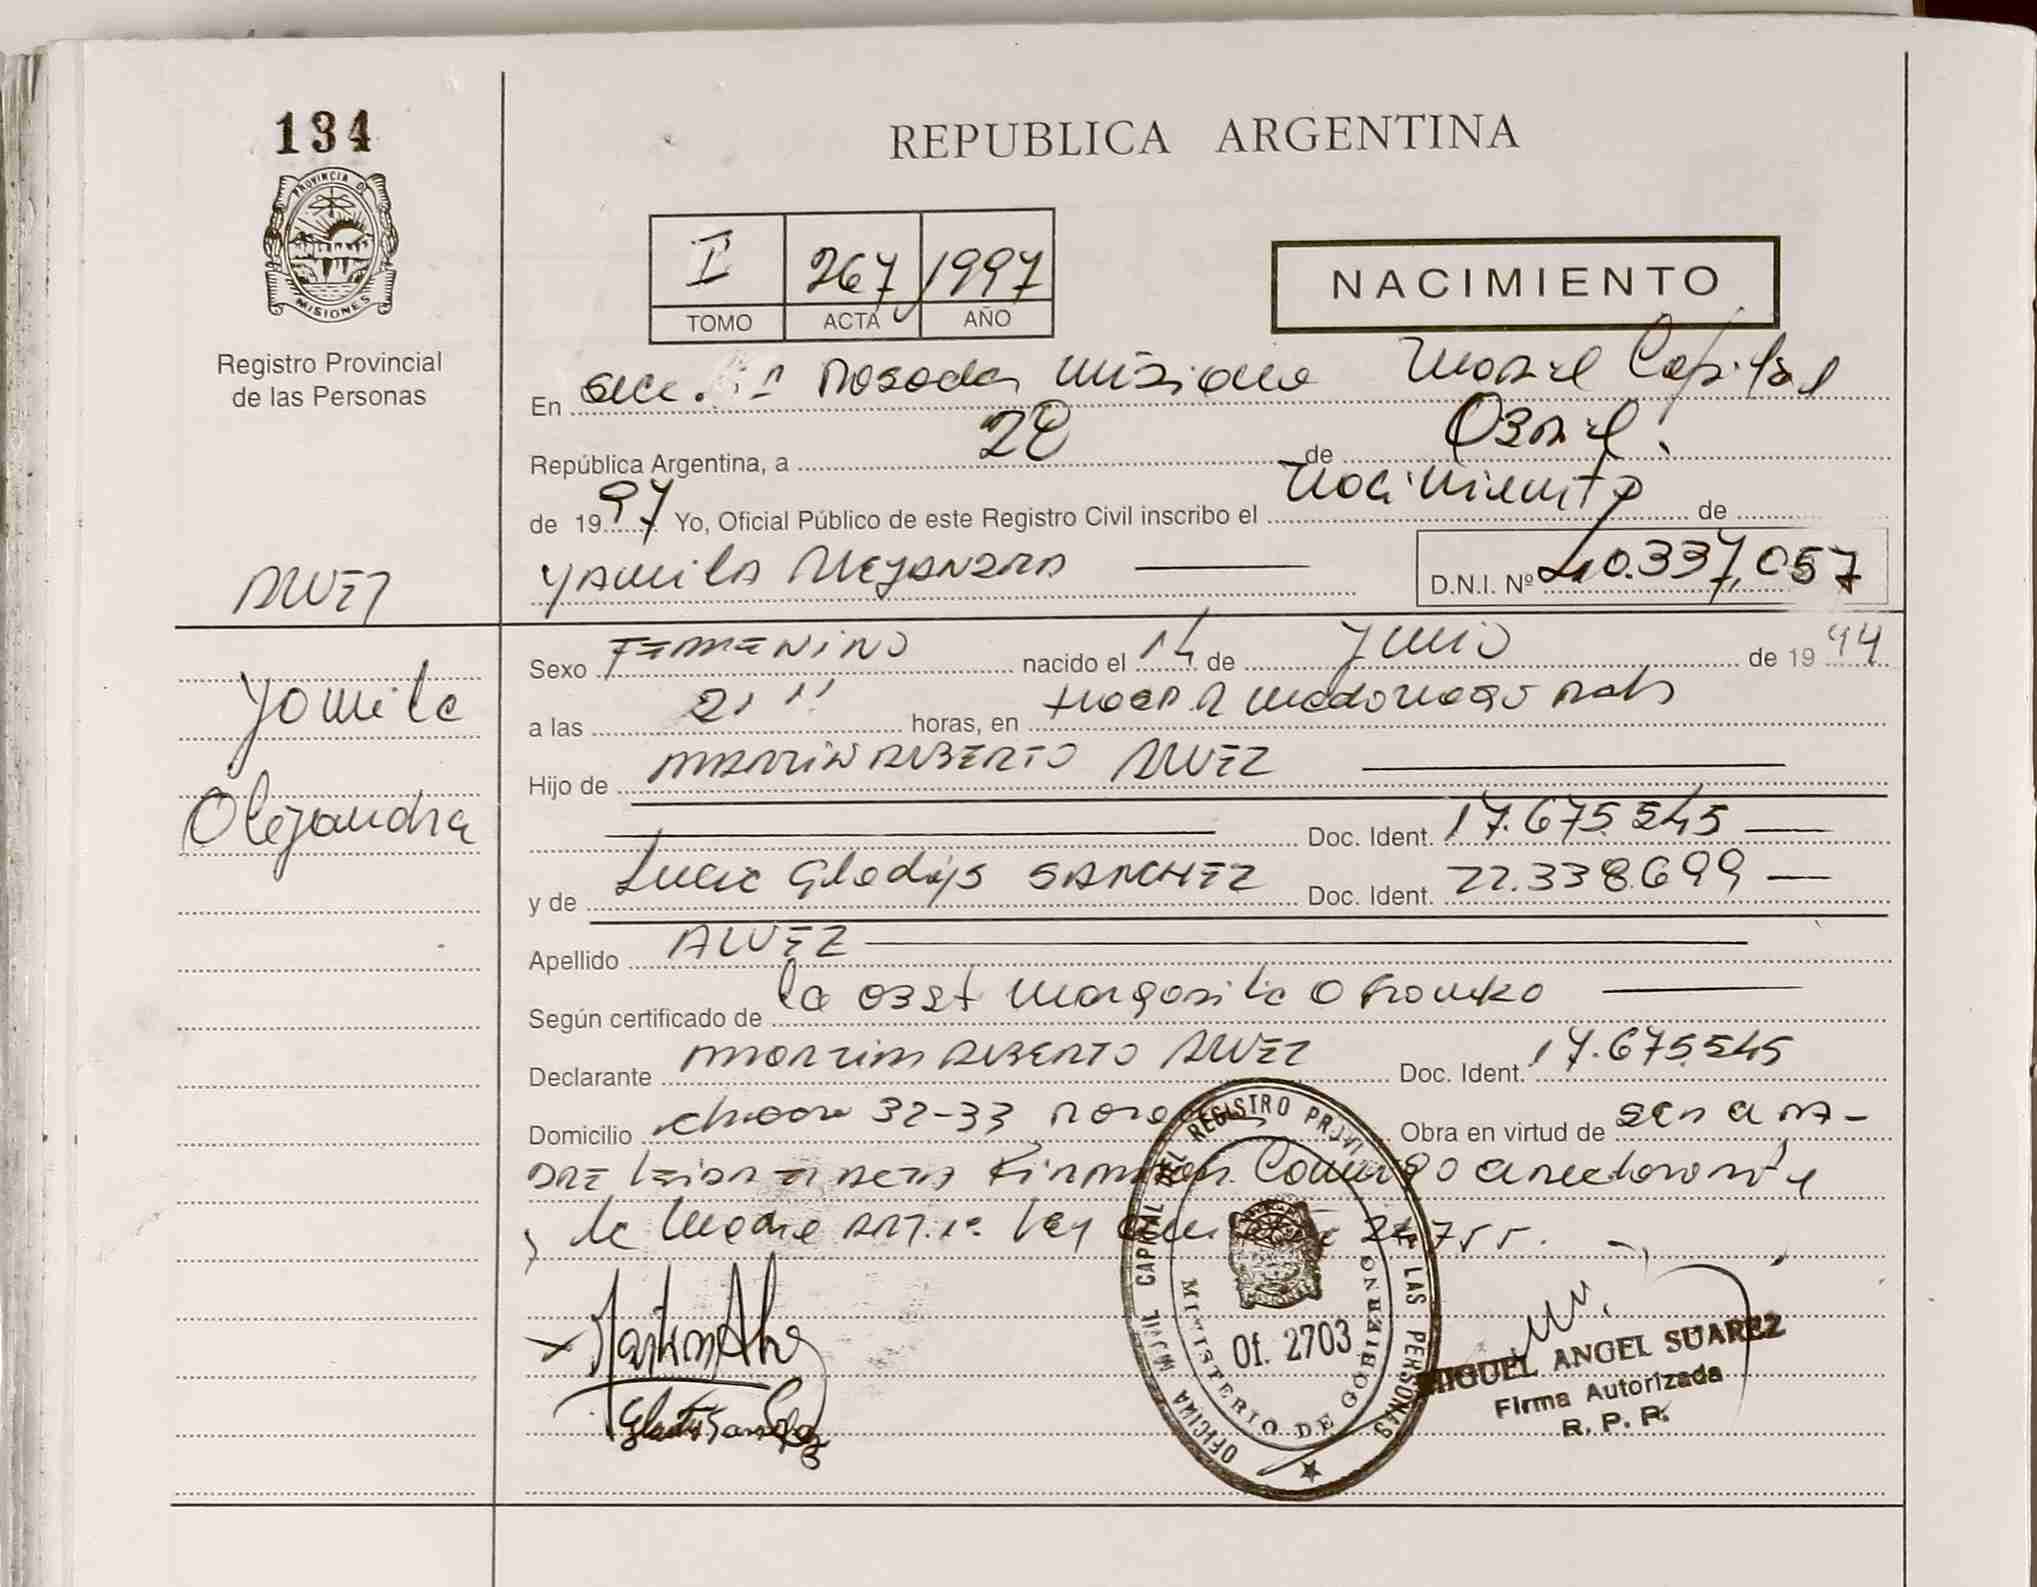 134
PROVINCIA D
MISIONES
Registro Provincial
de las Personas
REPUBLICA ARGENTINA
I 267 1997
TOMO ACTA AÑO
NACIMIENTO
En Posadas Misiones Capital
República Argentina, a 28 de Abril
de 1997 Yo, Oficial Público de este Registro Civil inscribo el Nacimiento de
ALVEZ
YAMILA ALEJANDRA D.N.I. Nº 40.337.057
Yamila
Alejandra
Sexo FEMENINO nacido el 14 de JUNIO de 1994
a las 21 horas, en
Hijo de MARTIN ALBERTO ALVEZ
Doc. Ident. 17.675.545
y de Lucia Gladys SANCHEZ Doc. Ident. 22.338.699
Apellido ALVEZ
Según certificado de la Obst Margarita
Declarante MARTIN ALBERTO ALVEZ Doc. Ident. 17.675.545
Domicilio chacra 32-33 Obra en virtud de ser el PA-
DRE Leida el ACTA Firman Conmigo el declarante
y la Madre ART. 1º Ley 24755.
OFICINA MOVIL CAPITAL DEL REGISTRO PROVI LAS PERSONAS
MINISTERIO DE GOBIERNO
Of. 2703
Martin Alvez
Gladis Sanchez
MIGUEL ANGEL SUAREZ
Firma Autorizada
R. P. P.